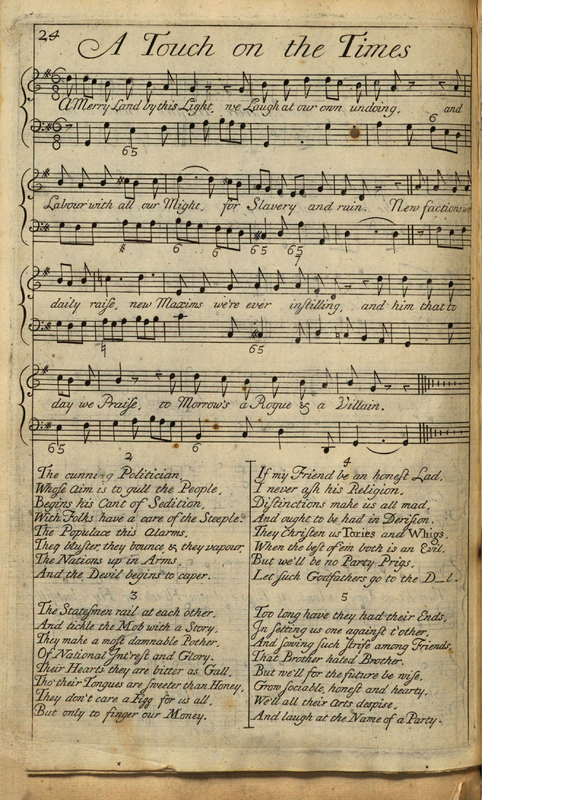 24
A Touch on the Times
A Merry Land by this Light, we Laugh at our own undoing, and
6
65
Labour with all our Might, for Slavery and ruin. New factions we
6 6 65 65
7
daily raise, new Maxims we're ever instilling, and him that to
65
day we Praise, to Morrow's a Rogue & a Villain.
65 6
2
The cunning Politician,
Whose aim is to gull the People,
Begins his Cant of Sedition,
With Folks have a care of the Steeple.
The Populace this alarms,
They bluster, they bounce & they vapour,
The Nations up in Arms,
And the Devil begins to caper.
3
The Statesmen rail at each other,
And tickle the Mob with a Story,
They make a most damnable Pother,
Of National Int'rest and Glory.
Their Hearts they are bitter as Gall,
Tho' their Tongues are sweeter than Honey,
They don't care a Figg for us all,
But only to finger our Money.
4
If my Friend be an honest Lad,
I never ask his Religion,
Distinctions make us all mad,
And ought to be had in Derision.
They Christen us Tories and Whigs,
When the best of em both is an Evil.
But we'll be no Party Prigs,
Let such Godfathers go to the D_l.
5
Too long have they had their Ends,
In setting us one against t'other,
And sowing such strife among Friends,
That Brother hated Brother.
But we'll for the future be wise,
Grow sociable, honest and hearty,
We'll all their arts despise,
And laugh at the Name of a Party.